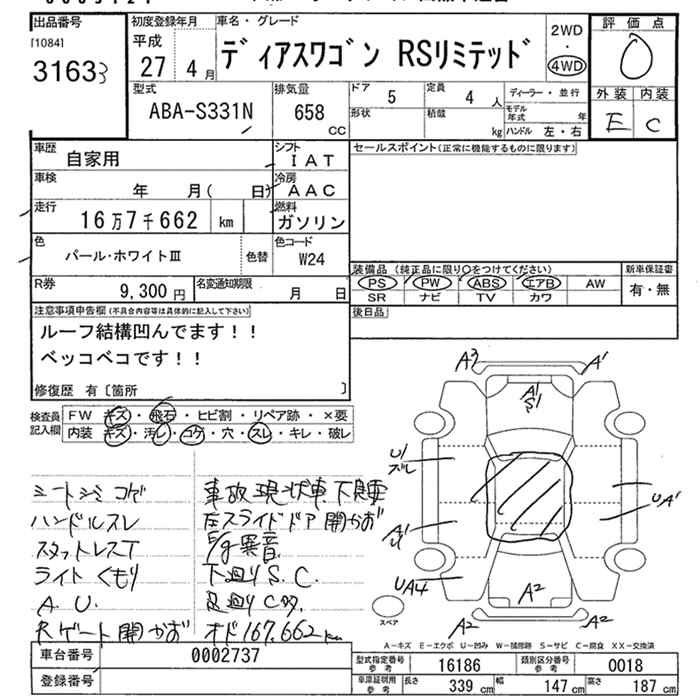 出品番号 初度登録年月 車名・グレード 2WD 評価点
[1084] 平成 ・
3163 27 4月 ディアスワゴン RSリミテッド 4WD 0
型式 排気量 ドア 5 定員 4人 ディーラー・並行 外装 内装
ABA-S331N 658 CC 形状 積載 kg モデル年式 年 E C
ハンドル 左・右
車歴 自家用 シフト IAT セールスポイント(正常に機能するものに限ります)
車検 年 月( 日) 冷房 AAC
走行 16万7千662 km 燃料 ガソリン
色 パール・ホワイトⅢ 色替 色コード W24
装備品 (純正品に限り○をつけてください) 新車保証書
R券 9,300円 名変通知期限 月 日 PS PW ABS エアB AW 有・無
SR ナビ TV カワ
注意事項申告欄(不具合内容等は具体的に記入して下さい) 後日品
ルーフ結構凹んでます!!
ベッコベコです!!
修復歴 有〔箇所 〕
A3 A1
A1
S1
検査員記入欄 FW キズ・飛石・ヒビ割・リペア跡・×要
内装 キズ・汚レ・コゲ・穴・スレ・キレ・破レ
U1
ズレ
UA1
シートシミコゲ 事故現状車
ハンドルスレ 左スライドドア開かず
A1
スタットレスT E/g異音
ライトくもり 下廻りS.C.
UA4 A2
A.U. 足廻りC多
スペア
Rゲート開かず オド167,662km
A2 A2
A-キズ E-エクボ U-凹み W-補修跡 S-サビ C-腐食 XX-交換済
車台番号 0002737 型式指定番号 参考 16186 類別区分番号 参考 0018
登録番号 車庫証明用 参考 長さ 339cm 幅 147cm 高さ 187cm